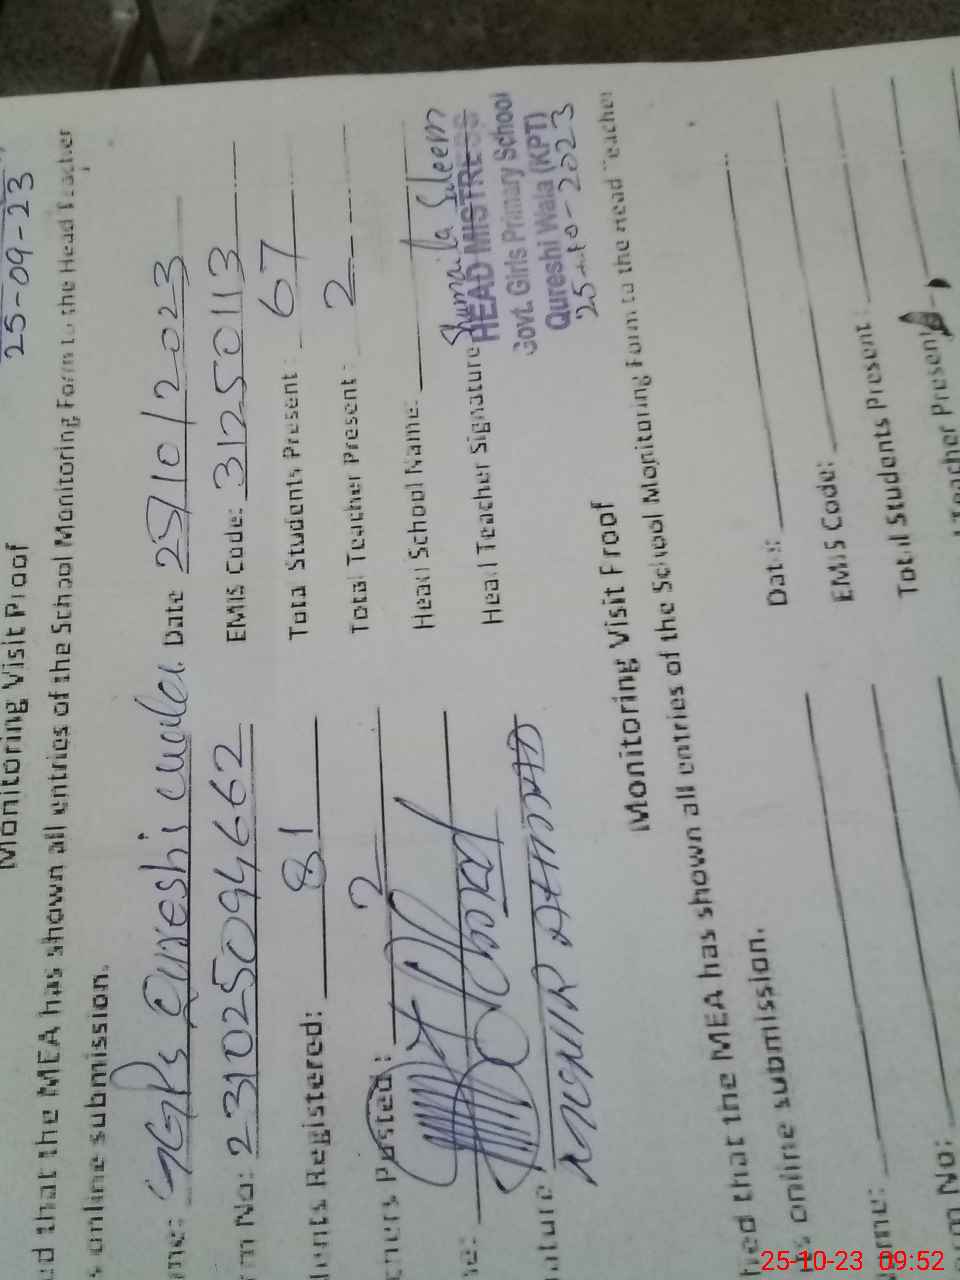 25-09-23
Monitoring Visit Proof
that the MEA has shown all entries of the School Monitoring Form to the Head Teacher
online submission.
GGPS Qureshi wala Date 25/10/2023
No: 231025094662 EMIS Code: 31250113
Registered: 81 Total Students Present: 67
Posted: 2 Total Teacher Present: 2
Head School Name:
Head Teacher Signature Shumaila Saleem
HEAD MISTRESS
Govt. Girls Primary School
Qureshi Wala (KPT)
25-10-2023
Monitoring Visit Proof
that the MEA has shown all entries of the School Monitoring Form to the Head Teacher
online submission.
Date:
EMIS Code:
Total Students Present:
No: Teacher Present
25-10-23 09:52